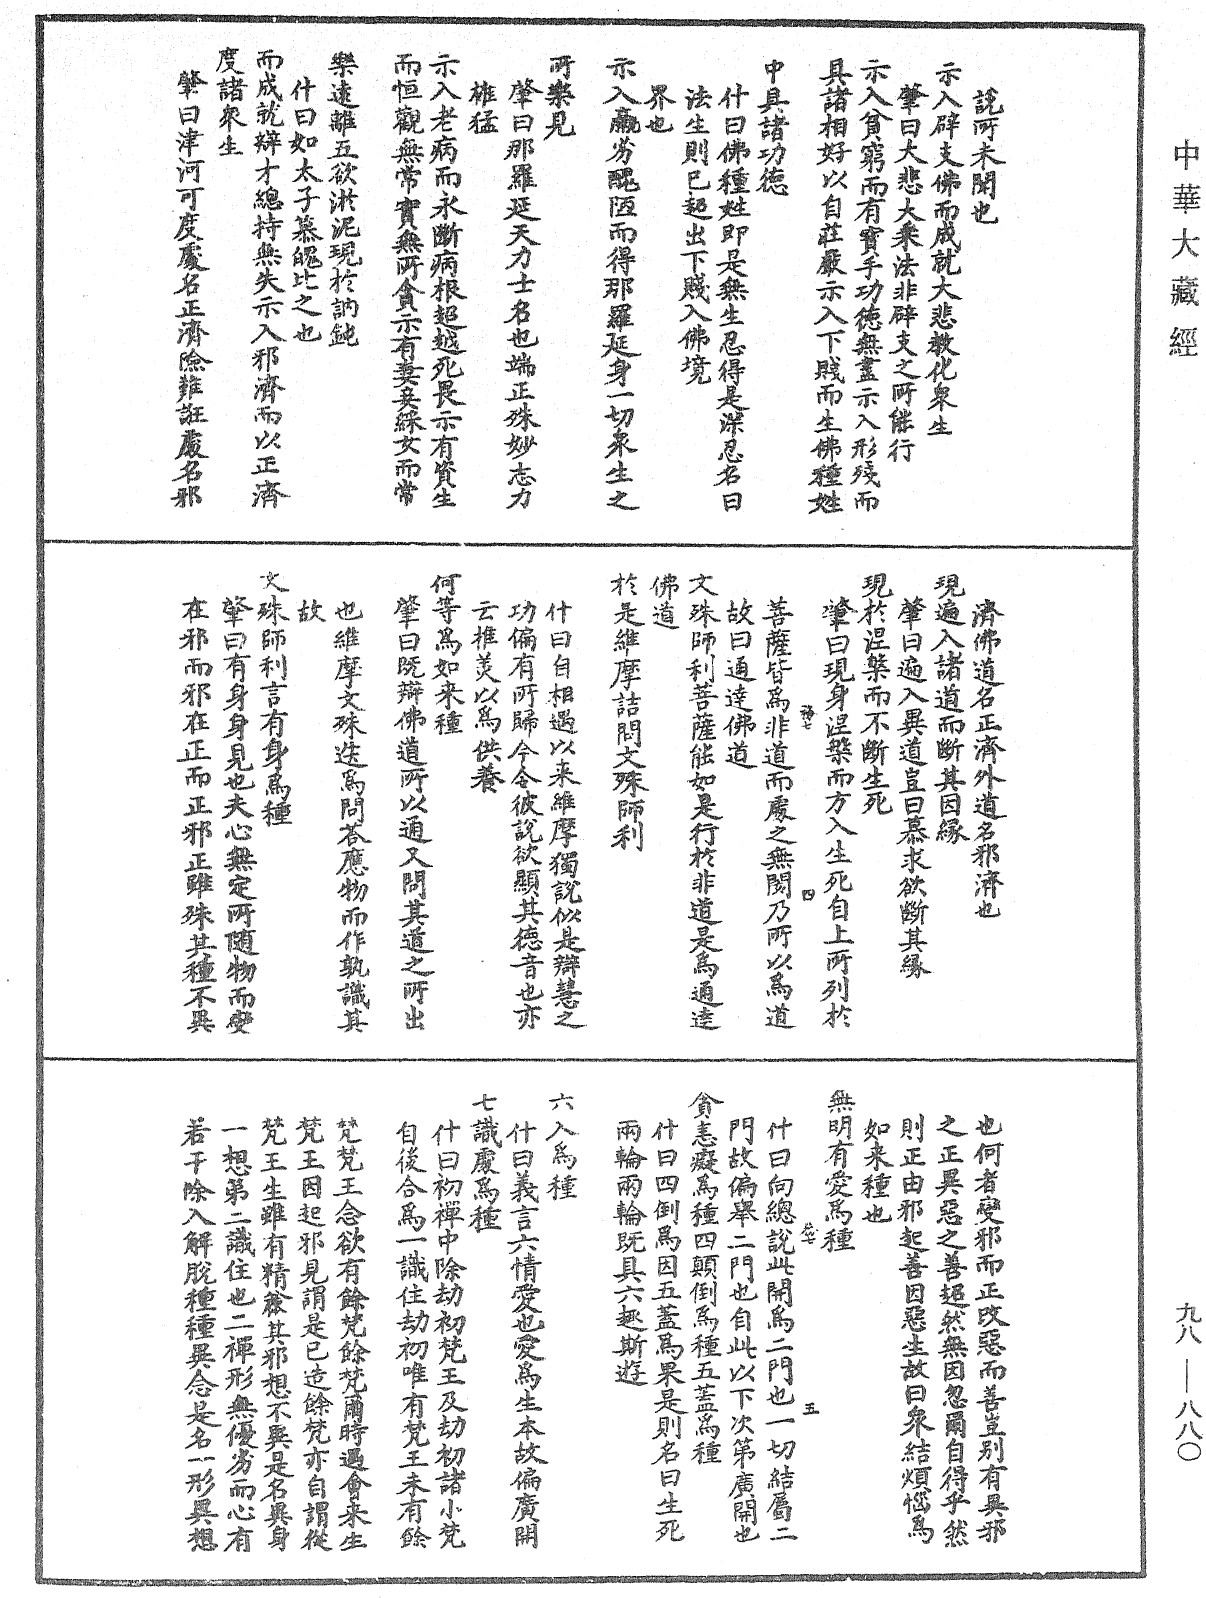 中華大藏經
說所未聞也
示入辟支佛而成就大悲教化衆生
肇曰大悲大乘法非辟支之所能行
示入貧窮而有寶手功德無盡示入形殘而
具諸相好以自莊嚴示入下賤而生佛種姓
中具諸功德
什曰佛種姓即是無生忍得是深忍名曰
法生則已超出下賤入佛境
界也
示入羸劣醜陋而得那羅延身一切衆生之
所樂見
肇曰那羅延天力士名也端正殊妙志力
雄猛
示入老病而永斷病根超越死畏示有資生
而恒觀無常實無所貪示有妻妾綵女而常
樂遠離五欲淤泥現於訥鈍
什曰如太子慕魄比之也
而成就辯才總持無失示入邪濟而以正濟
度諸衆生
肇曰津河可度處名正濟險難誑處名邪
濟佛道名正濟外道名邪濟也
現遍入諸道而斷其因緣
肇曰遍入異道豈曰慕求欲斷其緣
現於涅槃而不斷生死
肇曰現身涅槃而方入生死自上所列於
菩薩皆爲非道而處之無閡乃所以爲道
故曰通達佛道
文殊師利菩薩能如是行於非道是爲通達
佛道
於是維摩詰問文殊師利
什曰自相遇以来維摩獨說似是辯慧之
功偏有所歸今令彼說欲顯其德音也亦
云推美以爲供養
何等爲如来種
肇曰既辯佛道所以通又問其道之所出
也維摩文殊迭爲問荅應物而作孰識其
故
文殊師利言有身爲種
肇曰有身身見也夫心無定所隨物而變
在邪而邪在正而正邪正雖殊其種不異
四
也何者變邪而正改惡而善豈别有異邪
之正異惡之善超然無因忽爾自得乎然
則正由邪起善因惡生故曰衆結煩惱爲
如来種也
無明有愛爲種
什曰向總說此開爲二門也一切結屬二
門故偏舉二門也自此以下次第廣開也
貪恚癡爲種四顛倒爲種五蓋爲種
什曰四倒爲因五蓋爲果是則名曰生死
兩輪兩輪既具六趣斯遊
六入爲種
什曰義言六情愛也愛爲生本故偏廣開
七識處爲種
什曰初禪中除劫初梵王及劫初諸小梵
自後合爲一識住劫初唯有梵王未有餘
梵梵王念欲有餘梵餘梵爾時遇會来生
梵王因起邪見謂是已造餘梵亦自謂從
梵王生雖有精麁其邪想不異是名異身
一想第二識住也二禪形無優劣而心有
若干除入解脫種種異念是名一形異想
五
九八—八八〇